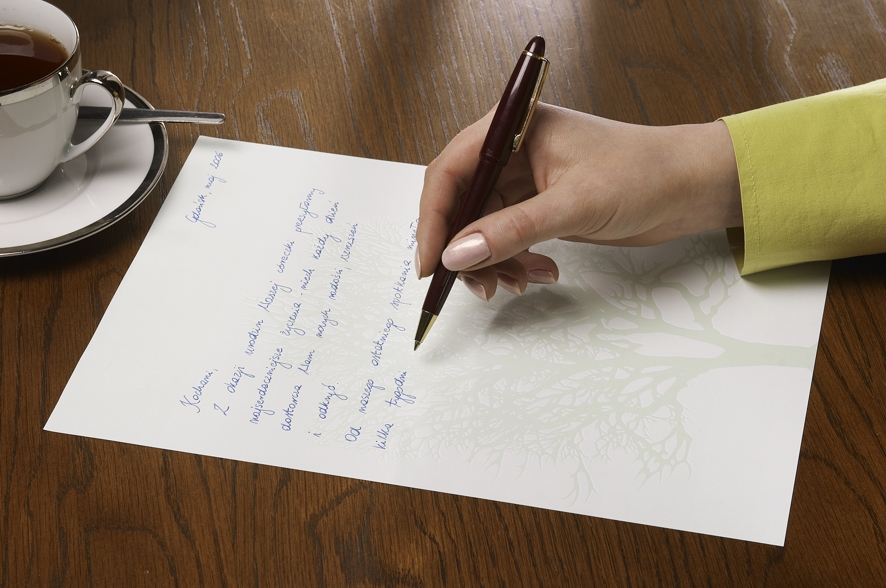 Gdańsk, maj 2006
Kochani,
Z okazji urodzin Waszej córeczki przesyłamy
najserdeczniejsze życzenia - niech każdy dzień
dostarcza Wam nowych radości, wzruszeń
i odkryć.
Od naszego ostatniego spotkania minęło
kilka tygodni